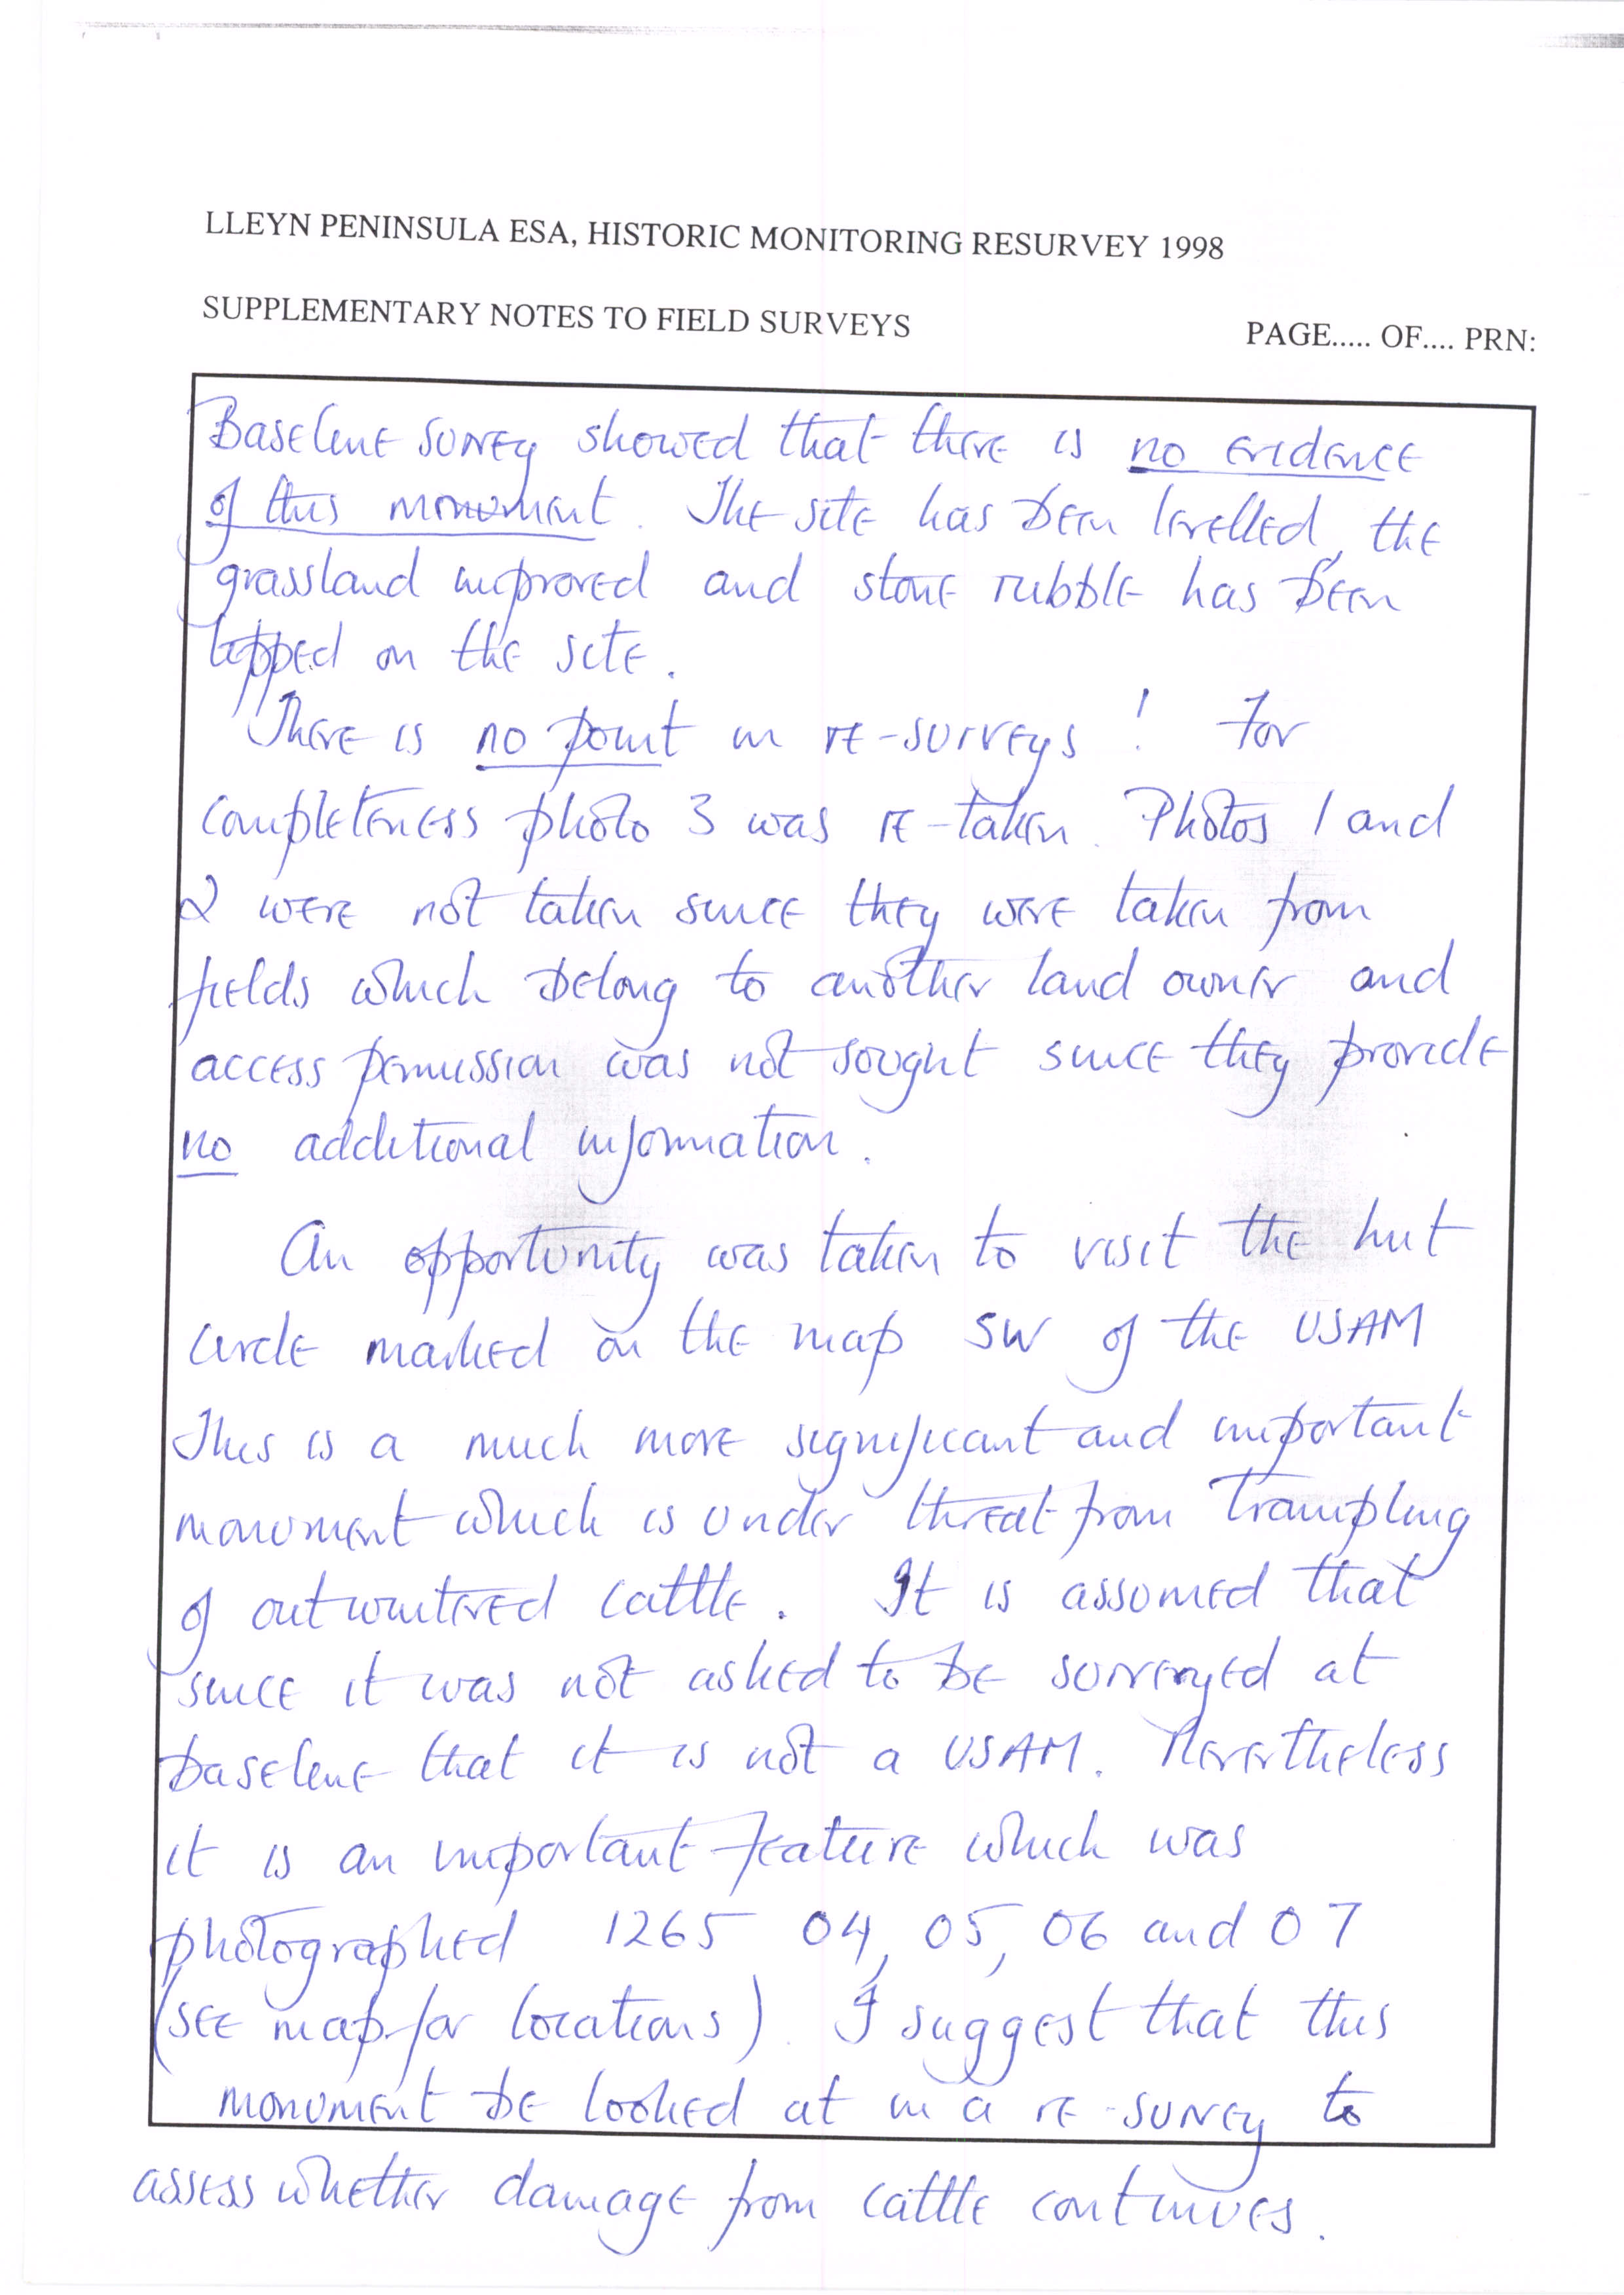 LLEYN PENINSULA ESA, HISTORIC MONITORING RESURVEY 1998
SUPPLEMENTARY NOTES TO FIELD SURVEYS PAGE..... OF.... PRN:
Baseline survey showed that there is no evidence
of this monument. The site has been levelled, the
grassland improved and stone rubble has been
tipped on the site.
There is no point in re-surveys! For
completeness photo 3 was re-taken. Photos 1 and
2 were not taken since they were taken from
fields which belong to another land owner and
access permission was not sought since they provide
no additional information.
An opportunity was taken to visit the hut
circle marked on the map SW of the USAM
This is a much more significant and important
monument which is under threat from trampling
of outwintered cattle. It is assumed that
since it was not asked to be surveyed at
baseline that it is not a USAM. Nevertheless
it is an important feature which was
photographed 1265 04, 05, 06 and 07
(see map for locations). I suggest that this
monument be looked at in a re-survey to
assess whether damage from cattle continues.